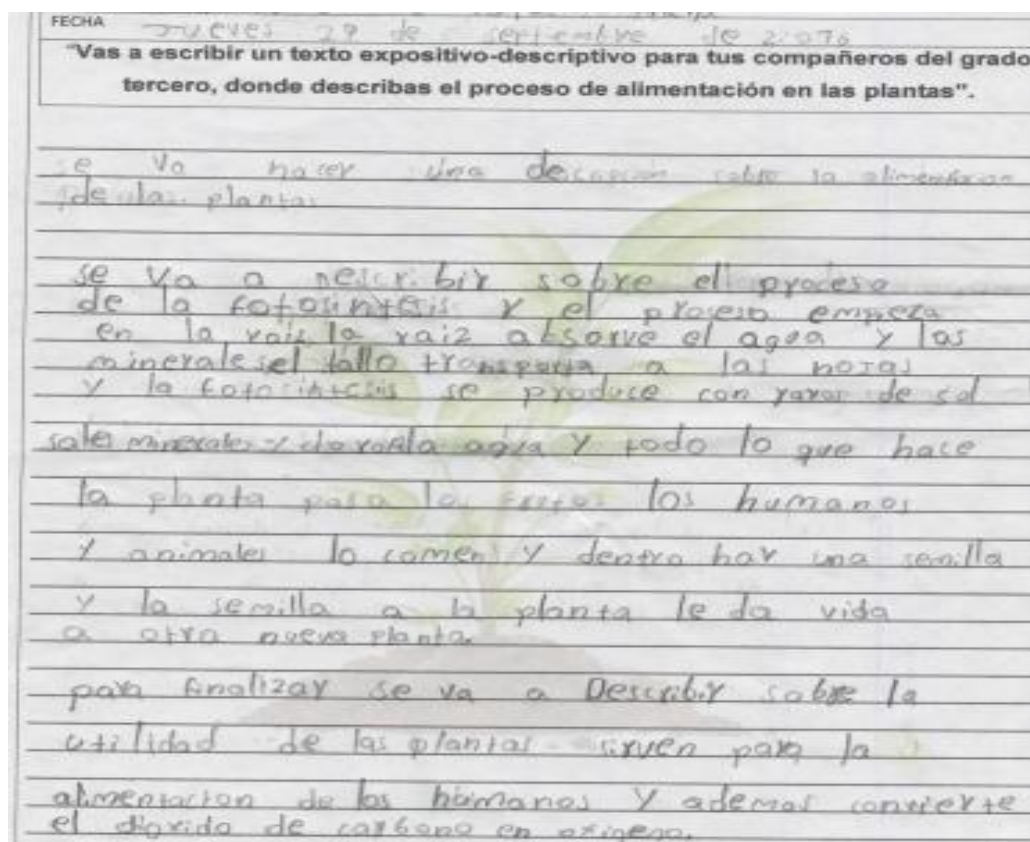 FECHA Jueves 29 de septiembre de 2.016
"Vas a escribir un texto expositivo-descriptivo para tus compañeros del grado
tercero, donde describas el proceso de alimentación en las plantas".
se va hacer una sobre la alimentacion
de las plantas
se va a sobre el proceso
de la fotosintesis y el proceso empeza
en la raiz la raiz absorve el agua y las
minerales el tallo transporta a las hojas
y la se produce con rayos de sol
sales minerales y agua y todo lo que hace
la planta pasa los humanos
y animales lo comen y dentro hay una semilla
y la semilla a la planta le da vida
a otra nueva planta.
para finalizar se va a Describir sobre la
utilidad de las plantas sirven para la
alimentacion de los humanos y ademas convierte
el dioxido de carbono en oxigeno.